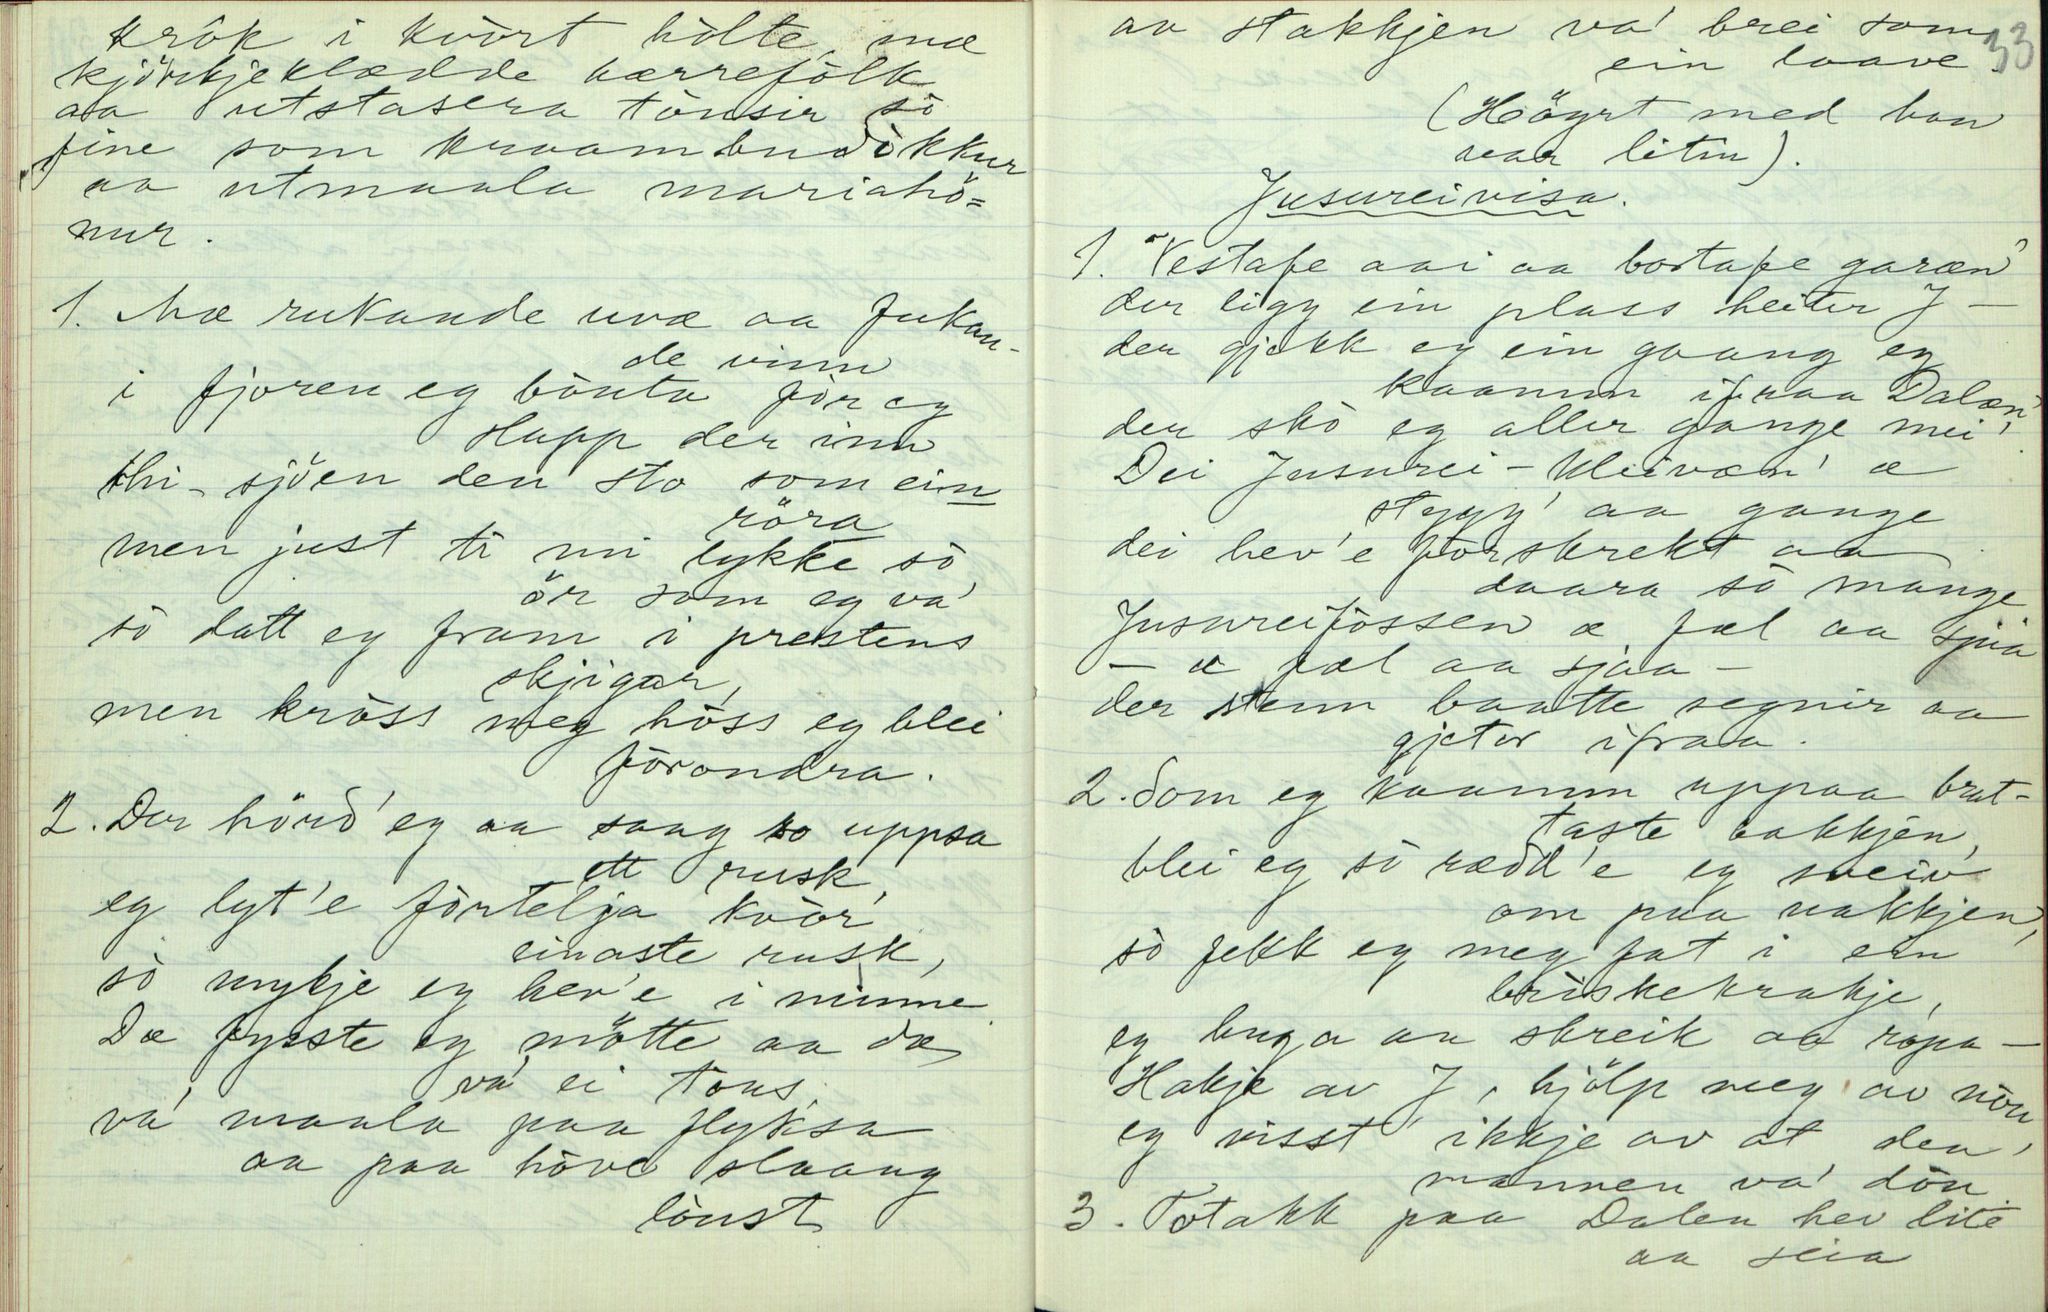 krôk i kvòrt hòlte, mæ
kjörkjeklædde hærrefòlk
aa utstasera tònsir sò
fine som kraambudòkkur
aa utmaala mariahö=
nur.
1. Mæ rukande uvæ aa fukan-
de vinn
i fjoren eg bònta fòr eg
slapp der inn
thi sjöen den sto som ein
röra
men just ti mi lykke sò
ör som eg va'
sò datt eg fram i prestens
skjigar,
men kròss meg hòss eg blei
fòrondra.
2. Der hörd' eg aa saag so uppsa
ett rusk,
eg lyt'e fòrtelja kvòr
einaste rusk,
sò mykje eg hev'e i minne
Dæ fysste eg mötte aa dæ
va' ei tous,
va' maala paa flyksa
aa paa hòve slaang
lòust
33
av stakkjen va' brei som
ein laave.
(Höyrt med han
var litin).
Jusureivisa.
1. Vestafe aai aa bortafe garæn'
der ligg ein plass heiter J -
der gjekk eg ein gaang eg
kaamm ifraa Dalæn'
der skò eg aller gange mei'!
Dei Jusurei-kleivæn' æ
stygg' aa gange
dei hev'e fòrskrekt aa
daara sò mange
Jusureifòssen æ fæl aa sjaa
- æ fæl aa sjaa -
der stenn baatte segnir aa
gjetor ifraa.
2. Som eg kaamm uppaa brat-
taste bakkjen,
blei eg sò rædd'e eg sveiv
om paa nakkjen,
sò fekk eg meg fat i ein
briskekrakje,
eg buga an skreik aa ropa -
Hakje av J, hjölp meg av nòu,
eg visst' ikkje av at den
mannen va' döu.
3. Totakk paa Dalen hev lite
aa seia